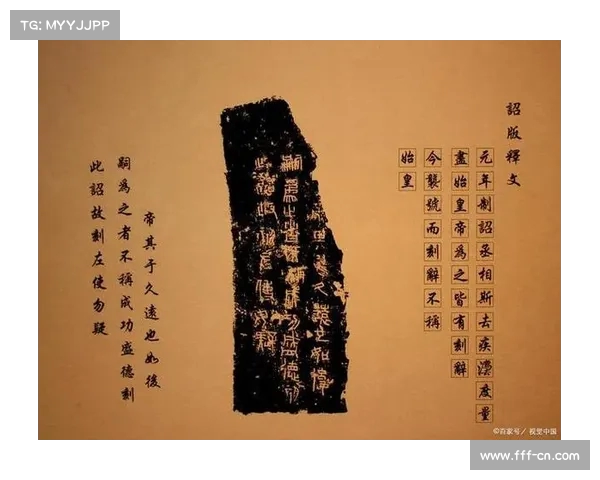 TG: MYYJJPP
詔版釋文
元年制詔丞相斯去疾灋度量
盡始皇帝為之皆有刻辭
今襲號而刻辭不稱
始皇
帝其于久遠也如後
嗣為之者不稱成功盛德刻
此詔故刻左使勿疑
©百家号／视觉中国
www.fff-cn.com